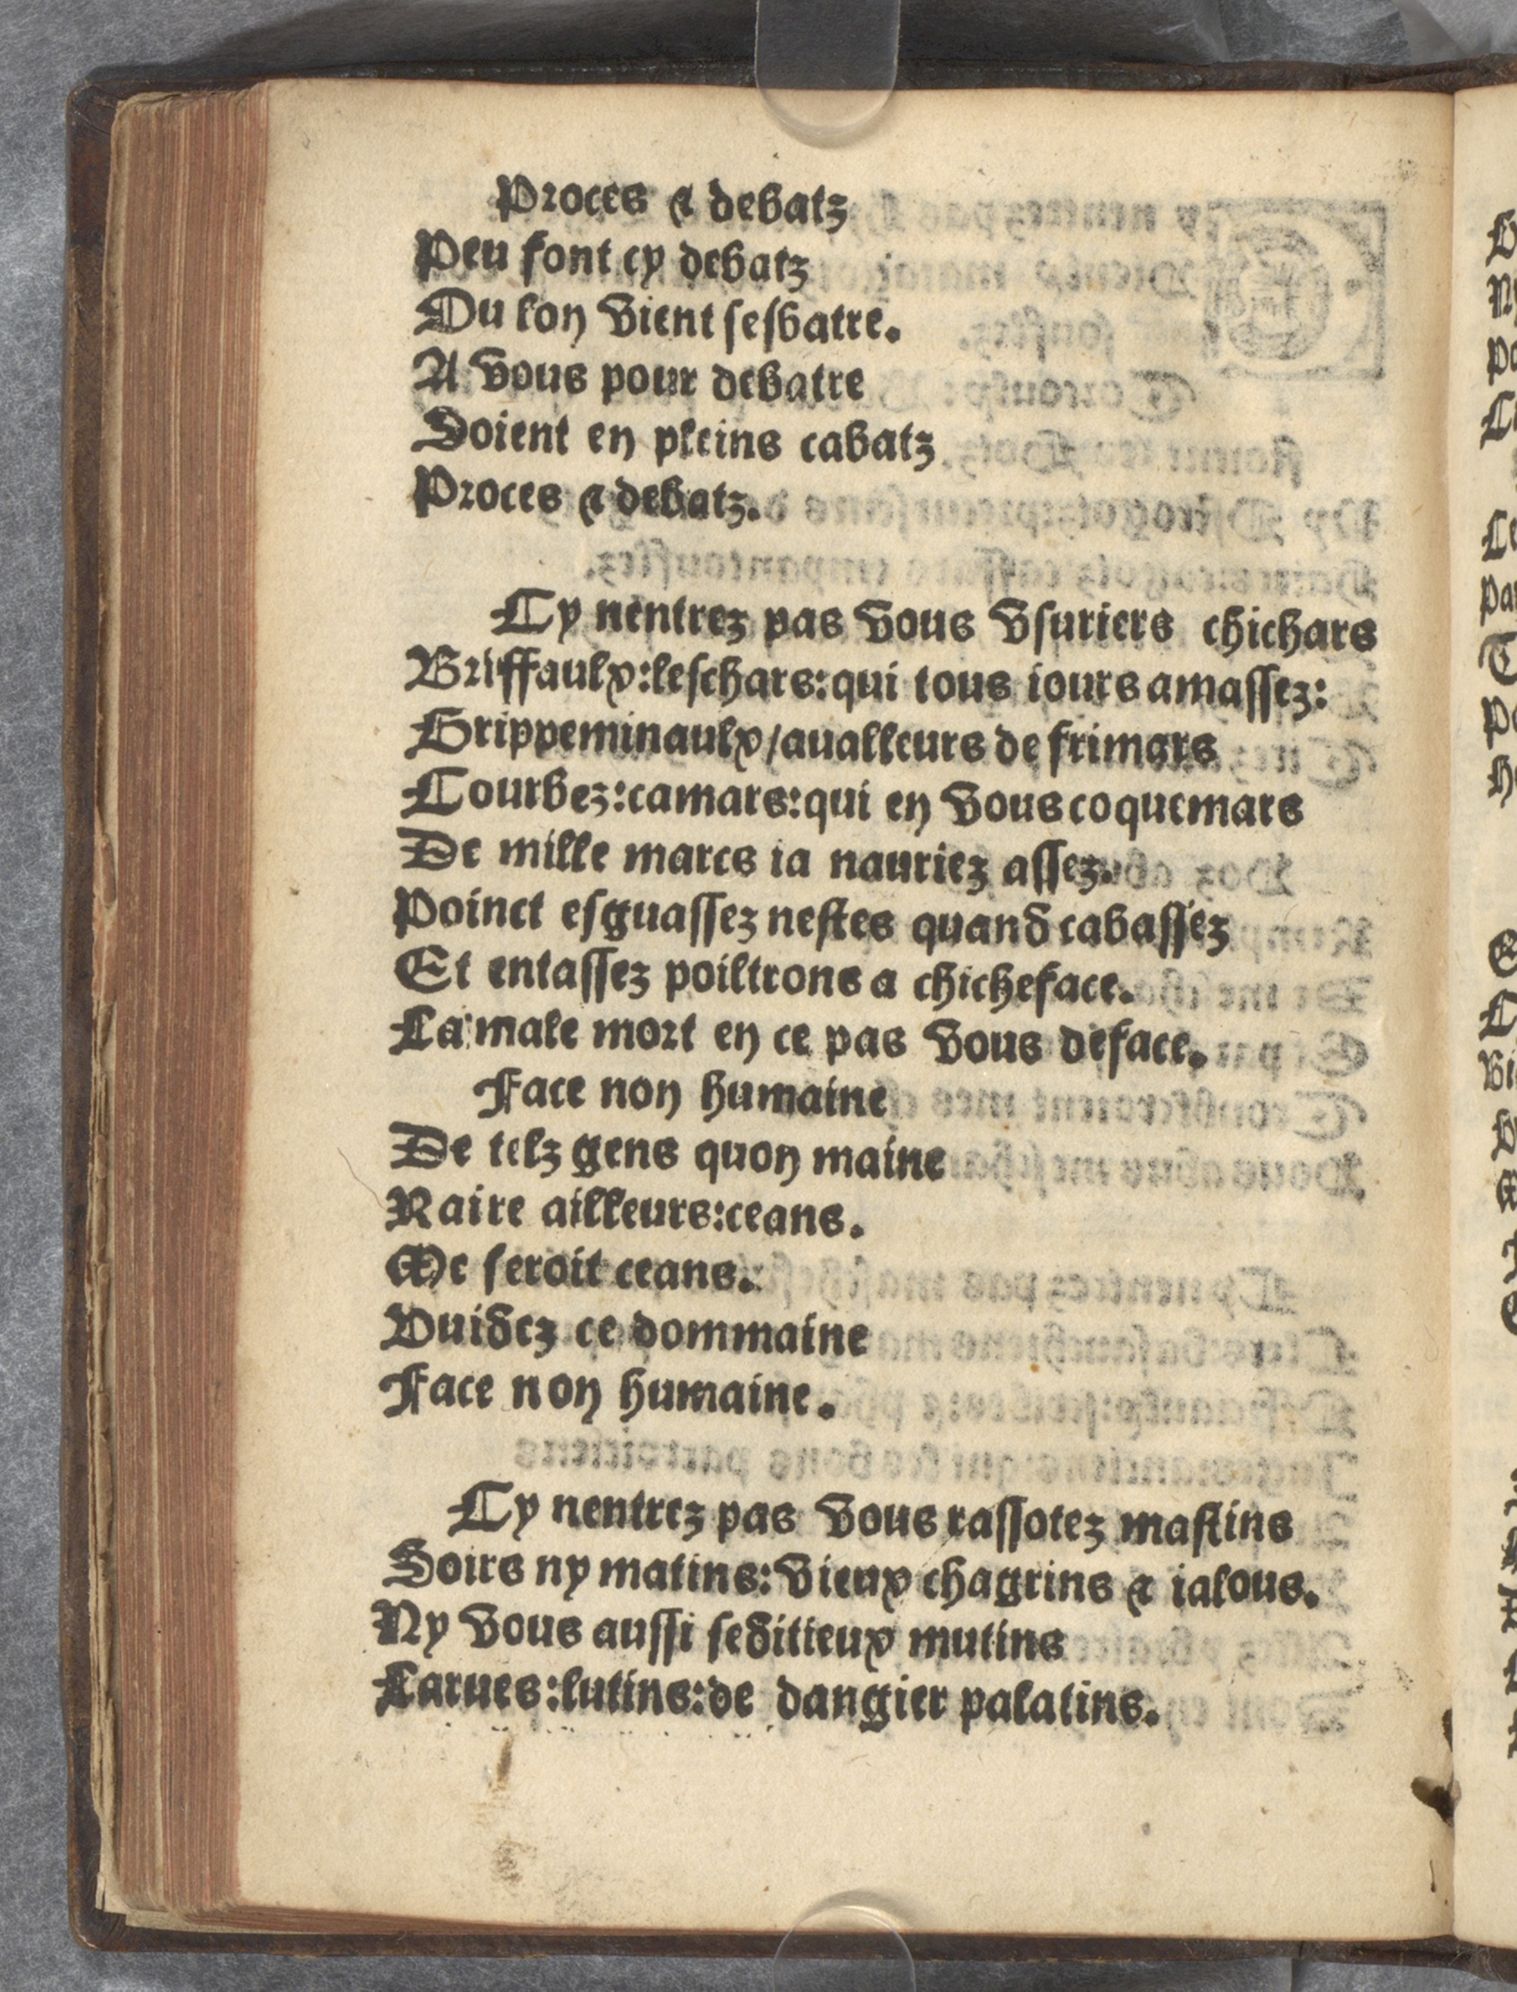 Proces & debatz
Peu font cy debatz
Ou lon vient sesbatre.
A vous pour debatre
Soient en pleins cabatz
Proces & debatz.
Cy nentrez pas vous vsuriers chichars
Briffaulx:leschars:qui tous iours amassez:
Grippeminaulx/aualleurs de frimars
Courbez:camars:qui en vous coquemars
De mille marcs ia nauriez assez.
Poinct esguassez nestes quand cabassez
Et entassez poiltrons a chicheface.
La male mort en ce pas vous deface.
Face non humaine
De telz gens quon maine
Raire ailleurs:ceans.
Me seroit ceans.
Vuidez ce dommaine
Face non humaine.
Cy nentrez pas vous rassotez mastins
Soirs ny matins:vieux chagrins & ialous.
Ny vous aussi seditieux mutins
Larues:lutins:de dangier palatins.